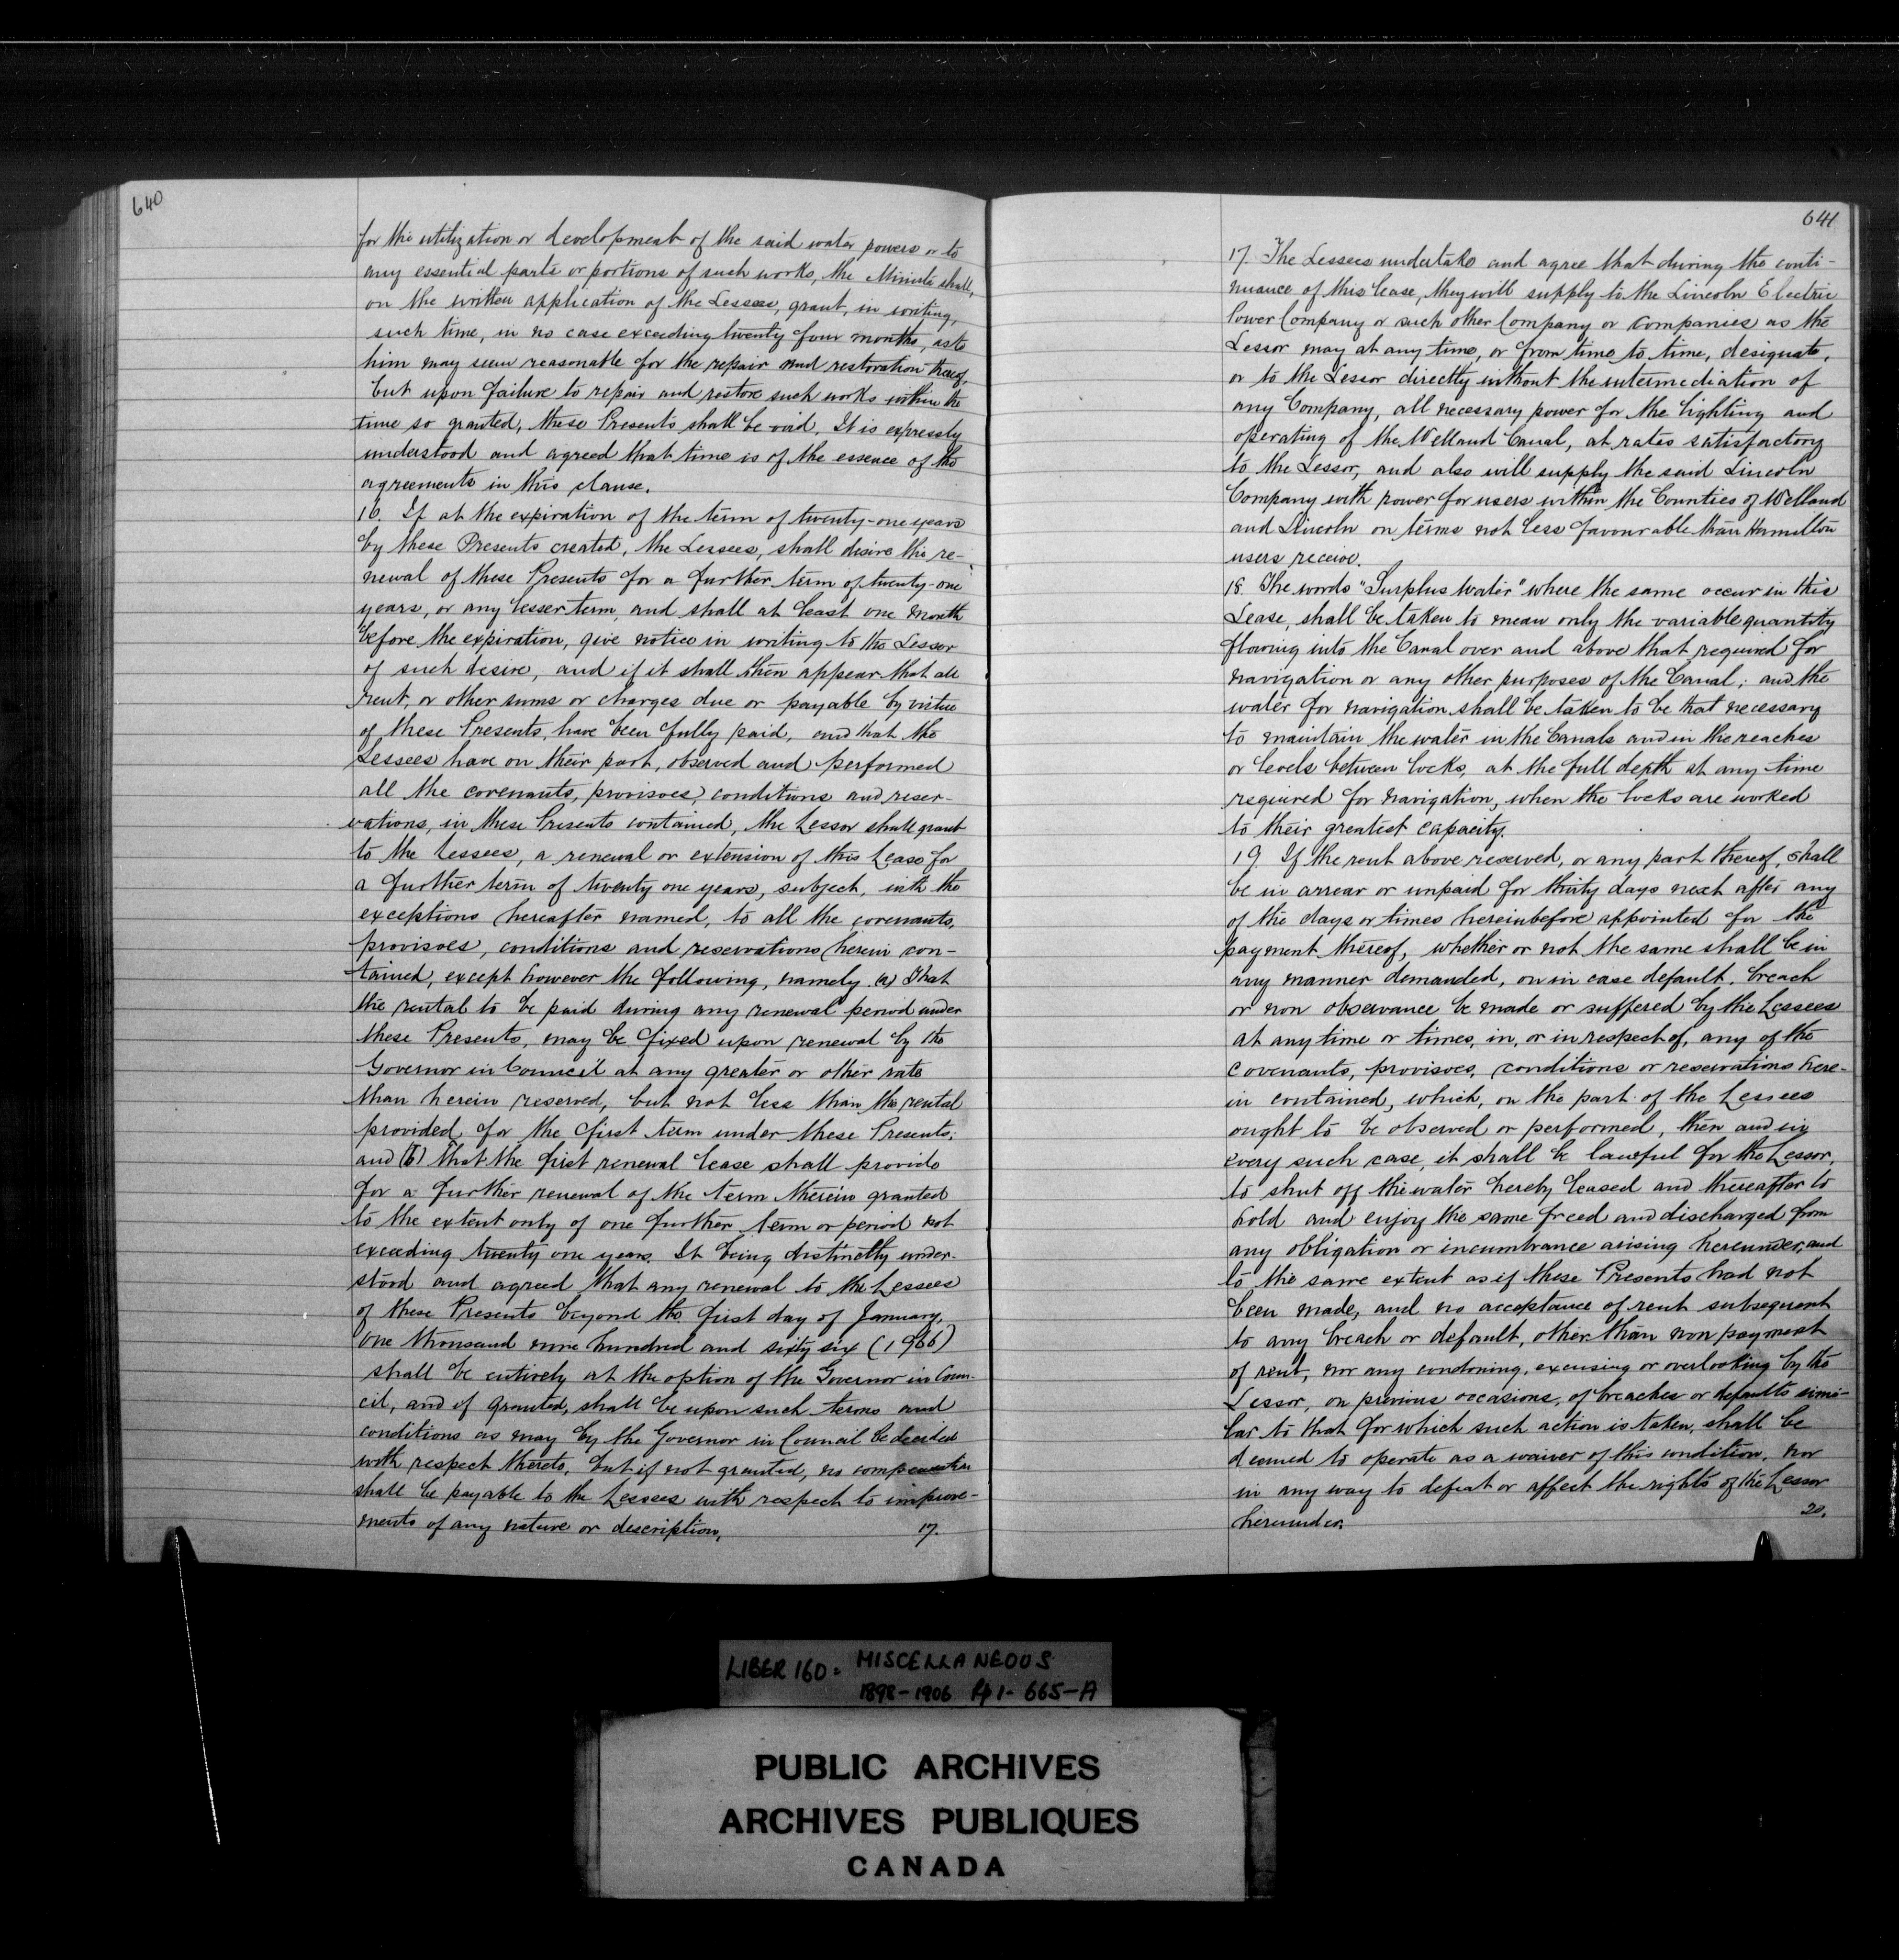 640
for the utilization or development of the said water powers or to
any essential parts or portions of such works, the Ministe shall,
on the written application of the Lessees, grant, in writing,
such time, in no case exceeding twenty four months, as to
him may seem reasonable for the repair and restoration thereof,
but upon failure to repair and restore such works within the
time so granted, these Presents shall be void. It is expressly
understood and agreed that time is of the essence of the
agreements in this clause.
16. If at the expiration of the term of twenty-one years
by these Presents created, the Lessees, shall desire the re-
newal of these Presents for a further term of twenty-one
years, or any lesser term, and shall at least one month
before the expiration, give notice in writing to the Lessor
of such desire, and if it shall then appear that all
rent, or other sums or charges due or payable by virtue
of these Presents, have been fully paid, and that the
Lessees have on their part, observed and performed
all the covenants, provisoes, conditions and reser-
vations, in these Presents contained, the Lessor shall grant
to the Lessees, a renewal or extension of this Lease for
a further term of twenty one years, subject, with the
exceptions hereafter named, to all the covenants,
provisoes, conditions and reservations herein con-
tained, except however the following, namely (a) That
the rental to be paid during any renewal period under
these Presents, may be fixed upon renewal by the
Governor in Council at any greater or other rate
than herein reserved, but not less than the rental
provided for the first term under these Presents;
and (b) That the first renewal lease shall provide
for a further renewal of the term therein granted
to the extent only of one further term or period not
exceeding twenty one years. It being distinctly under-
stood and agreed that any renewal to the Lessees
of these Presents beyond the first day of January,
one thousand nine hundred and sixty six (1966)
shall be entirely at the option of the Governor in Coun-
cil, and if granted, shall be upon such terms and
conditions as may by the Governor in Council be decided
with respect thereto, but if not granted, no compensation
shall be payable to the Lessees with respect to improve-
ments of any nature or description.
17.
641
17. The Lessees undertake and agree that during the conti-
nuance of this lease, they will supply to the Lincoln Electric
Power Company or such other Company or Companies as the
Lessor may at any time, or from time to time, designate,
or to the Lessor directly without the intermediation of
any Company, all necessary power for the lighting and
operating of the Welland Canal, at rates satisfactory
to the Lessor, and also will supply the said Lincoln
Company with power for users within the Counties of Welland
and Lincoln on terms not less favourable than Hamilton
users receive.
18. The words "Surplus Water" where the same occur in this
Lease, shall be taken to mean only the variable quantity
flowing into the Canal over and above that required for
navigation or any other purposes of the Canal; and the
water for navigation shall be taken to be that necessary
to maintain the water in the Canals and in the reaches
or levels between locks, at the full depth at any time
required for navigation, when the locks are worked
to their greatest capacity.
19. If the rent above reserved, or any part thereof, shall
be in arrear or unpaid for thirty days next after any
of the days or times hereinbefore appointed for the
payment thereof, whether or not the same shall be in
any manner demanded, or in case default, breach
or non observance be made or suffered by the Lessees
at any time or times, in, or in respect of, any of the
covenants, provisoes, conditions or reservations here-
in contained, which, on the part of the Lessees
ought to be observed or performed, then and in
every such case, it shall be lawful for the Lessor,
to shut off the water hereby leased and thereafter to
hold and enjoy the same freed and discharged from
any obligation or incumbrance arising hereunder, and
to the same extent as if these Presents had not
been made, and no acceptance of rent subsequent
to any breach or default, other than non payment
of rent, nor any condoning, excusing or overlooking by the
Lessor, on previous occasions, of breaches or defaults simi-
lar to that for which such action is taken, shall be
deemed to operate as a waiver of this condition, nor
in any way to defeat or affect the rights of the Lessor
hereunder.
20.
LIBER 160: MISCELLANEOUS
1898-1906 Pp 1-665-A
PUBLIC ARCHIVES
ARCHIVES PUBLIQUES
CANADA